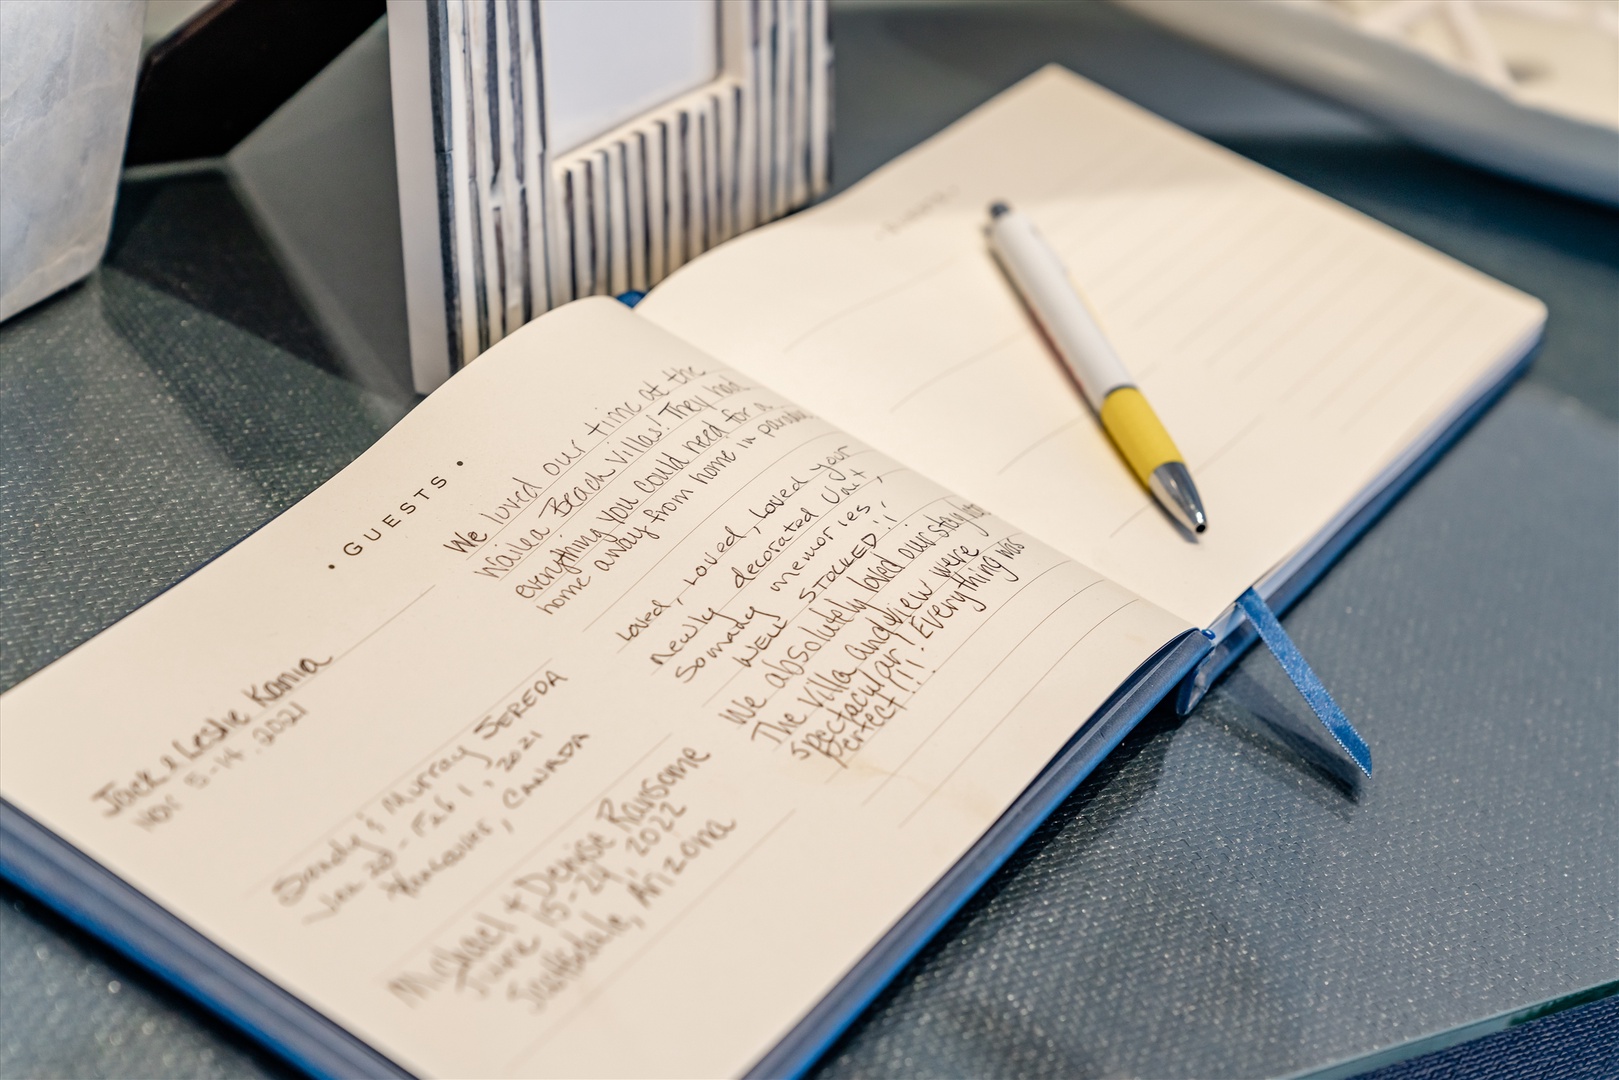 • GUESTS •
Jack & Leslie Kania
Nov 5-14, 2021
We loved our time at the
Wailea Beach Villas! They had
everything you could need for a
home away from home in
Sandy & Murray SEREDA
Jan 20 - Feb 1, 2021
Vancouver, CANADA
Loved, Loved, Loved your
newly decorated Unit,
So many memories,
WELL STOCKED!!
Michael + Denise Ransome
June 15-24 2022
Scottsdale, Arizona
We absolutely loved our stay
The villa and view were
spectacular! Everything was
perfect!!!